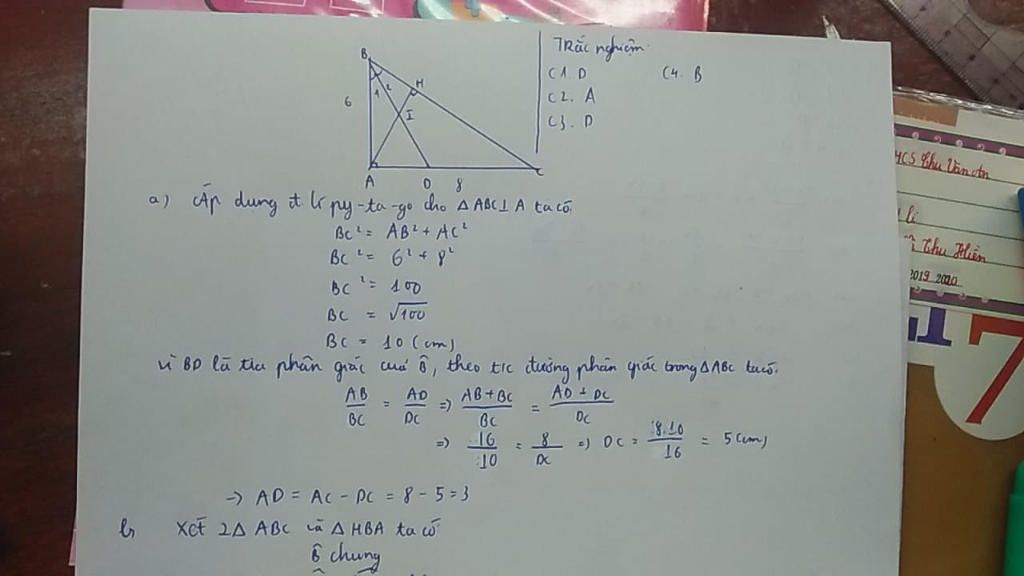 Trắc nghiệm
C1. D C4. B
C2. A
C3. D
B
1 2
H
6
I
A D 8 C
a) Áp dụng đ lí py-ta-go cho △ABC⊥A ta có
BC² = AB² + AC²
BC² = 6² + 8²
BC² = 100
BC = √100
BC = 10 (cm)
vì BD là tia phân giác của B̂, theo t/c đường phân giác trong △ABC ta có.
AB/BC = AD/DC => AB+BC/BC = AD+DC/DC
=> 16/10 = 8/DC => DC = 8.10/16 = 5(cm)
-> AD = AC - DC = 8 - 5 = 3
b, Xét 2△ ABC và △ HBA ta có
B̂ chung
THCS Chu Văn An
Thu Hiền
2019 2020
7